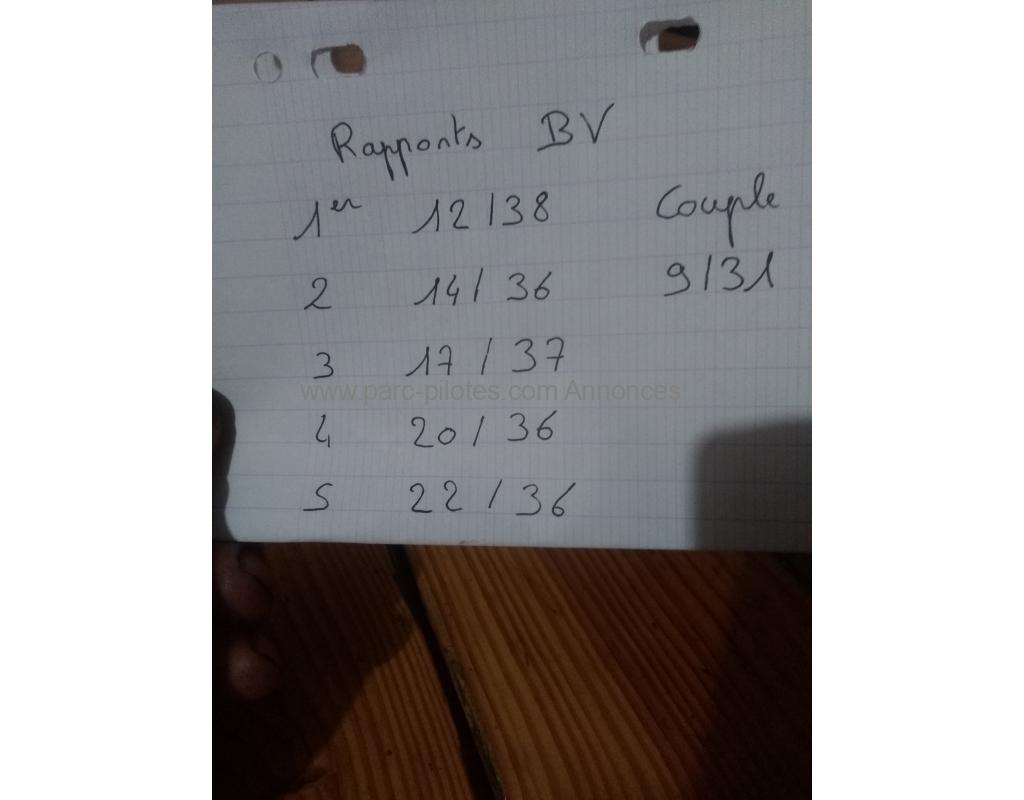 Rapports BV
1er 12/38 Couple
2 14/36 9/31
3 17/37
www.parc-pilotes.com Annonces
4 20/36
5 22/36